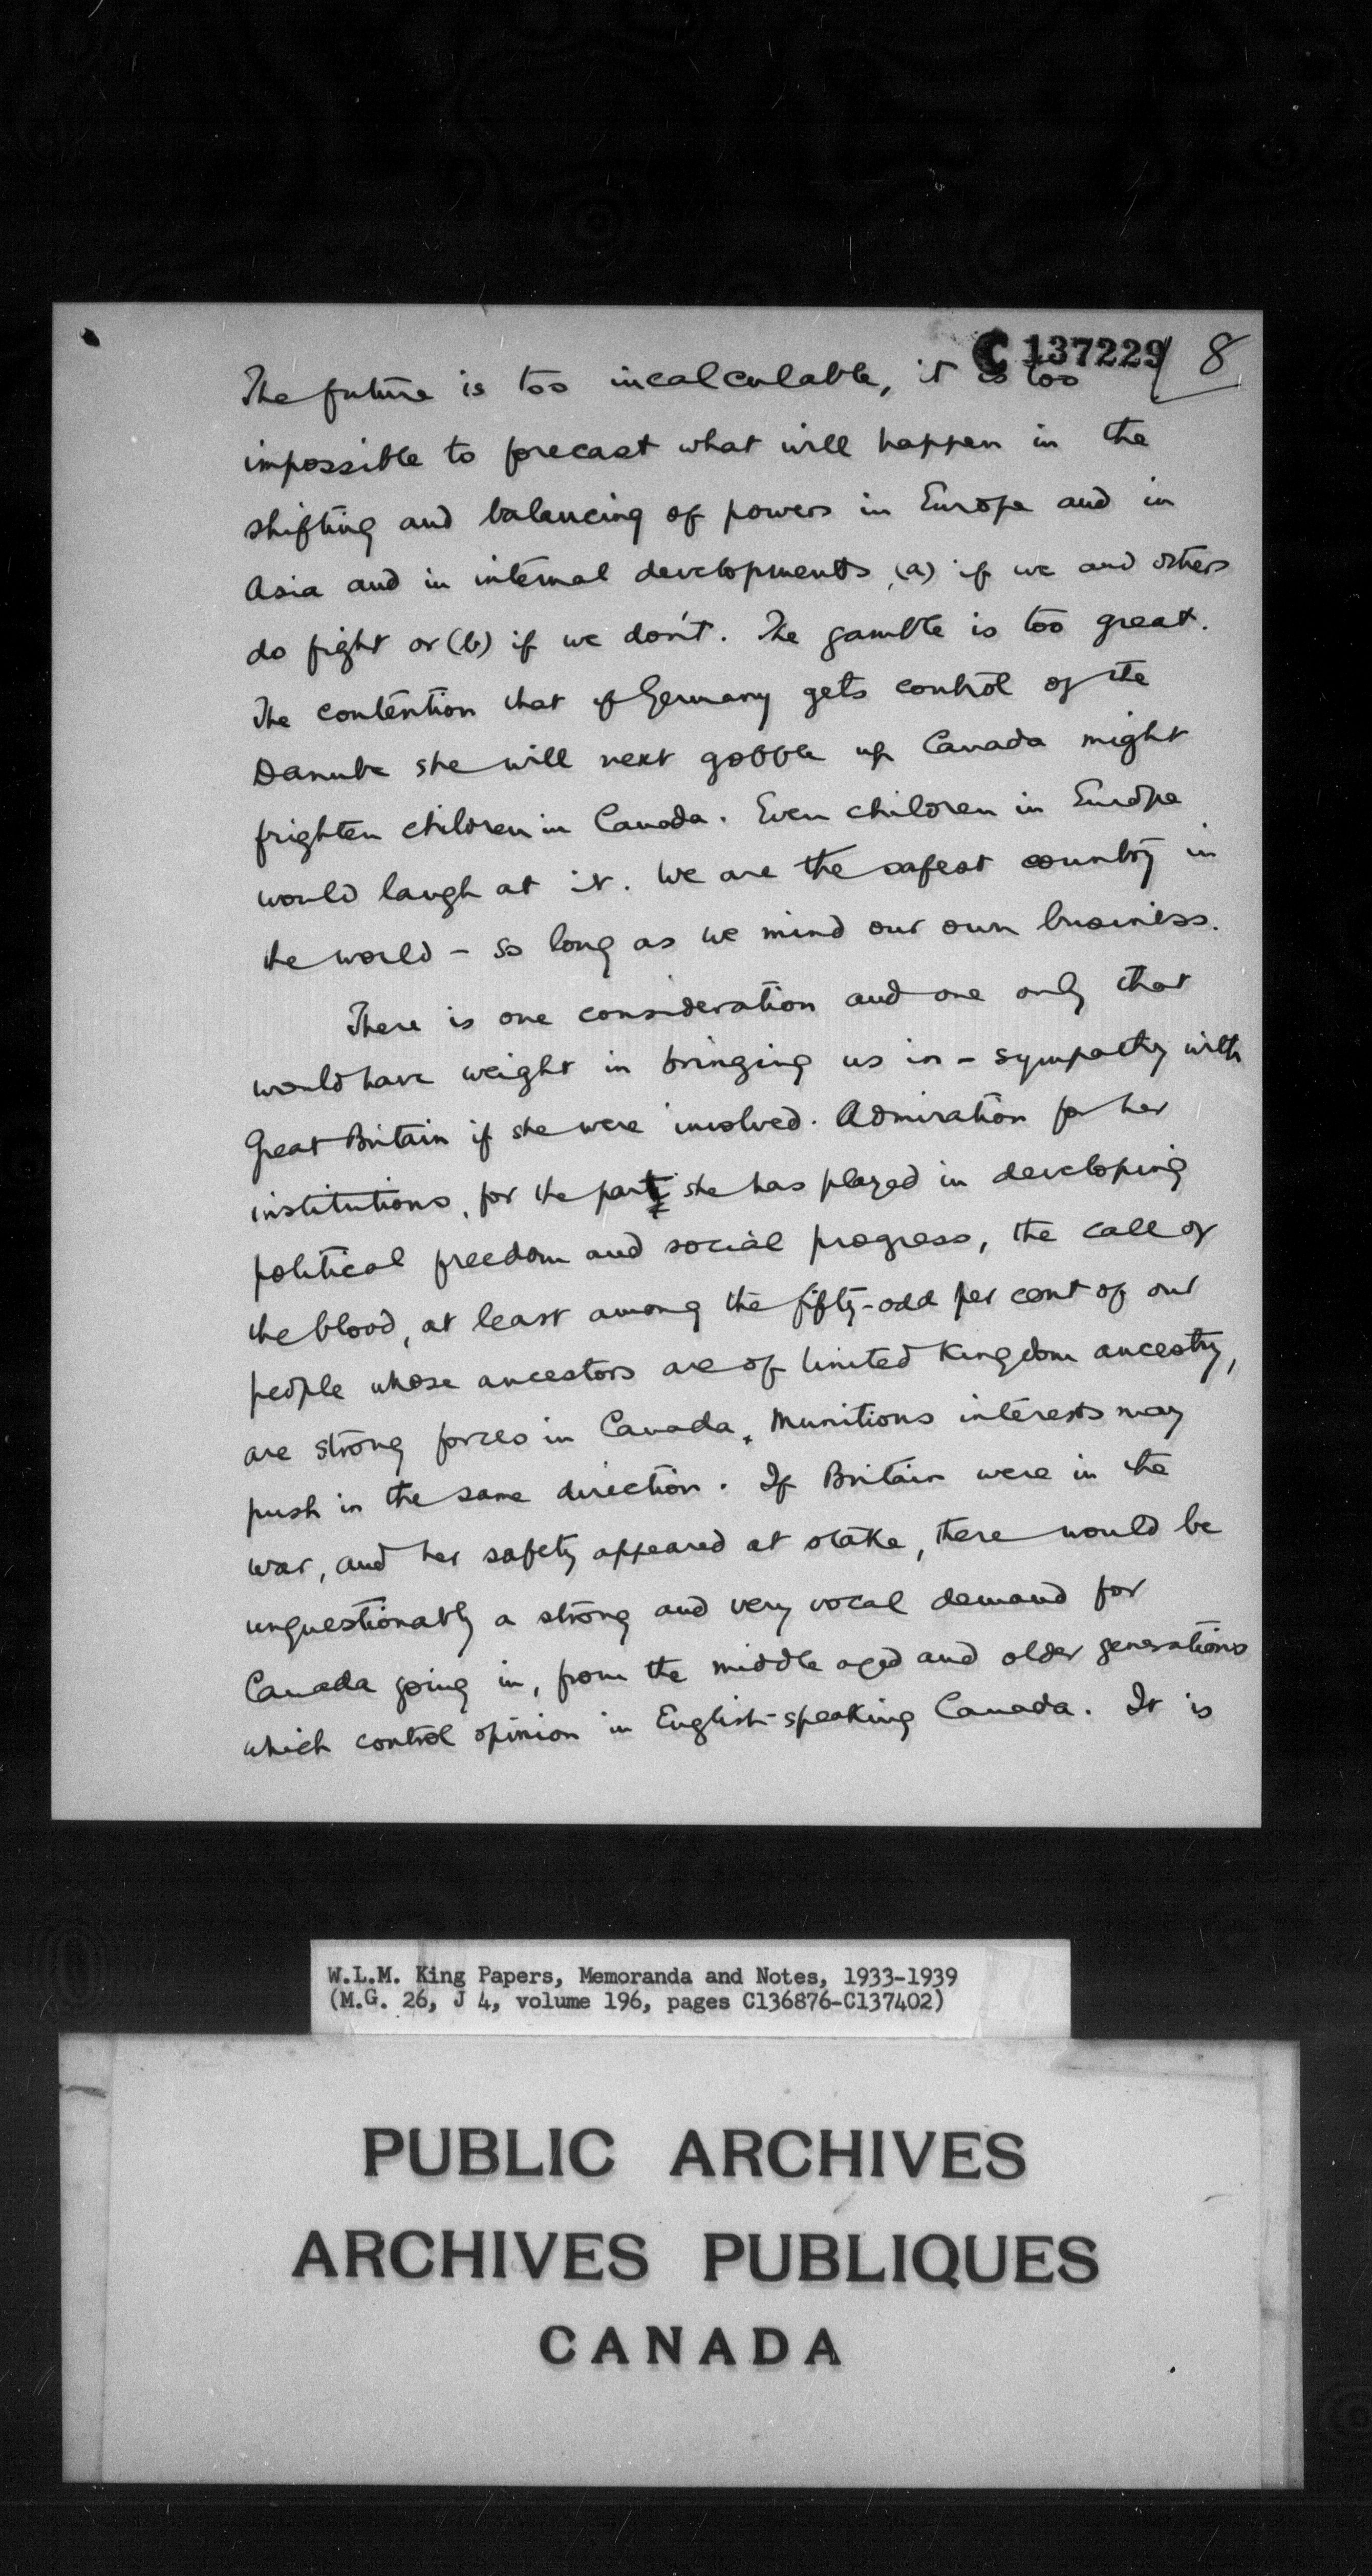 C 137229
8
The future is too incalculable, it is too
impossible to forecast what will happen in the
shifting and balancing of powers in Europe and in
Asia and in internal developments (a) if we and others
do fight or (b) if we don't. The gamble is too great.
The contention that if Germany gets control of the
Danube she will next gobble up Canada might
frighten children in Canada. Even children in Europe
would laugh at it. We are the safest country in
the world – so long as we mind our own business.
There is one consideration and one only that
would have weight in bringing us in – sympathy with
Great Britain if she were involved. Admiration for her
institutions, for the part she has played in developing
political freedom and social progress, the call of
the blood, at least among the fifty-odd per cent of our
people whose ancestors are of United Kingdom ancestry,
are strong forces in Canada. Munitions interests may
push in the same direction. If Britain were in the
war, and her safety appeared at stake, there would be
unquestionably a strong and very vocal demand for
Canada going in, from the middle aged and older generations
which control opinion in English-speaking Canada. It is
W.L.M. King Papers, Memoranda and Notes, 1933-1939
(M.G. 26, J 4, volume 196, pages C136876-C137402)
PUBLIC ARCHIVES
ARCHIVES PUBLIQUES
CANADA